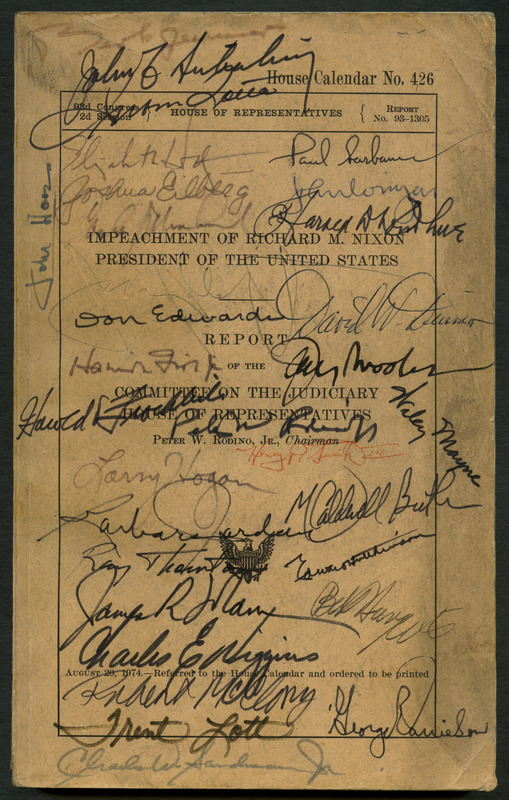 John F. Seiberling
House Calendar No. 426
93d Congress
2d Session
HOUSE OF REPRESENTATIVES
REPORT
No. 93-1305
Elizabeth Holtzman
Paul Sarbanes
Joshua Eilberg
John Conyers
Harold D Donohue
IMPEACHMENT OF RICHARD M. NIXON
PRESIDENT OF THE UNITED STATES
Don Edwards
David W. Dennis
REPORT
Hamilton Fish Jr
OF THE
Jack Brooks
COMMITTEE ON THE JUDICIARY
Harold V Froehlich
HOUSE OF REPRESENTATIVES
Wiley Mayne
PETER W. RODINO, JR., Chairman
Larry Hogan
M Caldwell Butler
Barbara Jordan
Ray Thornton
Edward Hutchinson
James R Mann
Bill Hungate
Charles E Wiggins
AUGUST 20, 1974.—Referred to the House Calendar and ordered to be printed
Robert McClory
Trent Lott
George Danielson
Charles W. Sandman Jr